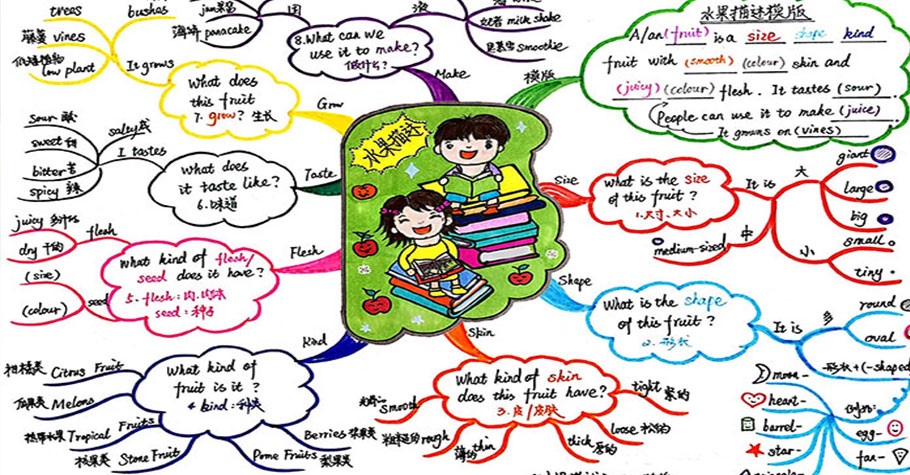 水果描述模版
A/an (fruit) is a size shape kind
fruit with (smooth) (colour) skin and
(juicy) (colour) flesh. It tastes (sour).
People can use it to make (juice)
It grows on (vines)
模版
水果描述
Size
What is the size
of this fruit?
1.尺寸、大小
It is
大
giant
large
big
中
medium-sized
小
small
tiny
Shape
What is the shape
of this fruit?
2. 形状
It is
round
oval
形状+(-shaped
moon-
heart-
barrel-
star-
egg-
fan-
Skin
What kind of skin
does this fruit have?
3. 皮/皮肤
smooth
粗糙的 rough
薄的 thin
thick 厚的
loose 松的
tight 紧的
Kind
What kind of
fruit is it?
4 kind:种类
柑橘类 Citrus Fruit
瓜果类 Melons
热带水果 Tropical Fruits
核果类 Stone Fruit
Pome Fruits 梨果类
Berries 浆果类
Flesh
What kind of flesh/
seed does it have?
5. flesh:肉、肉体
seed:种子
flesh
juicy 多汁的
dry 干的
seed
(size)
(colour)
Taste
What does
it taste like?
6.味道
I tastes
salty 咸
sour 酸
sweet 甜
bitter 苦
spicy 辣
Grow
What does
this fruit
7. grow? 生长
It grows
trees
bushes
藤蔓 vines
low plant
Make
8.What can we
use it to make?
做什么?
jam 果酱
pancake
奶昔 milk shake
smoothie